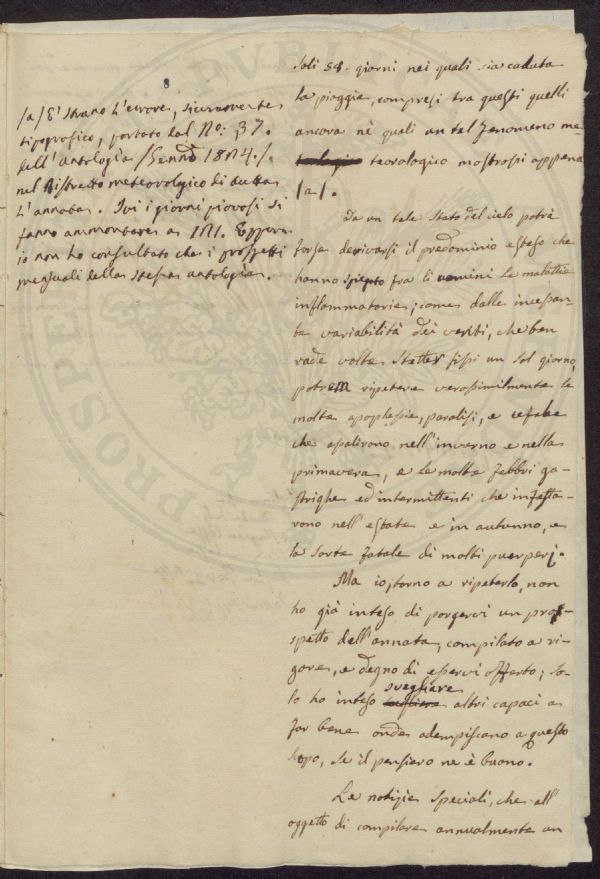 8
/a/ E' strano l'errore, sicuramente
tipografico, portato dal N.º 37.
dell'antologia /Genn.º 1824./.
nel Ristretto meteorologico di tutta
l'annata. Ivi i giorni piovosi si
fanno ammontare a 121. Eppure
io non ho consultato che i prospetti
mensuali della stessa antologia.
soli 58. giorni nei quali sia caduta
la pioggia, compresi tra questi quelli
ancora nè quali un tal fenomeno me-
teorologico mostrossi appena
/a/.
Da un tale stato del cielo potrà
forse derivarsi il predominio esteso che
hanno fra li uomini le malattie
inflammatorie; come dalle incessan-
te variabilità dei venti, che ben
rade volte stetter fissi un sol giorno,
potrem ripetere verosimilmente le
molte apoplessie, paralisi, e
che assalirono nell'inverno e nella
primavera, e le molte febbri ga-
striche ed intermittenti che infesta-
rono nell'estate e in autunno, e
la sorte fatale di molti puerperj.
Ma io, torno a ripeterlo, non
ho già inteso di porgervi un pro-
spetto dell'annata, compilato a ri-
gore, e degno di esservi offerto; so-
lo ho inteso svegliare altri capaci a
far bene onde adempiscano a questo
scopo, se il pensiero ne è buono.
Le notizie speciali, che all'
oggetto di compilare annualmente un